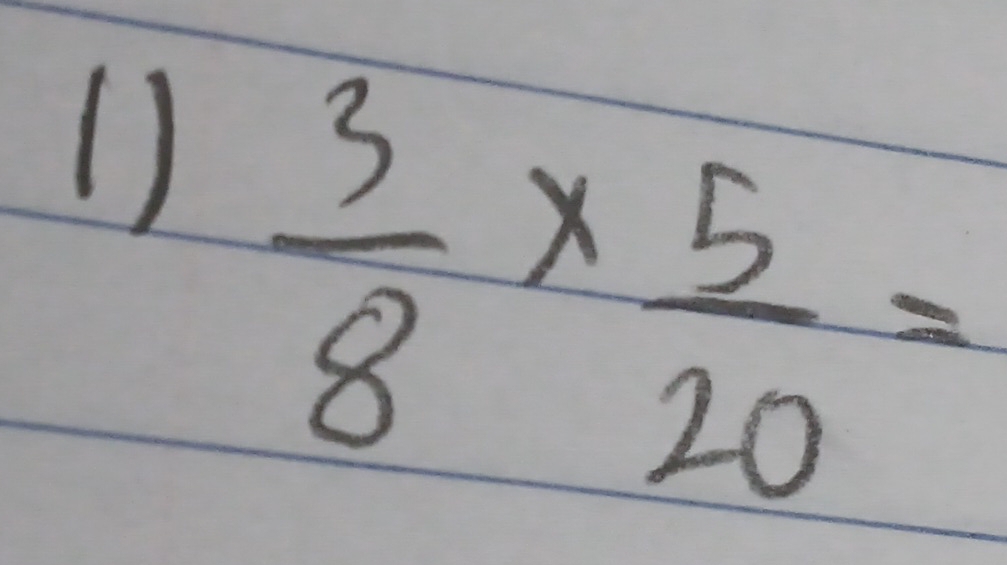 1) 3/8 × 5/20 =